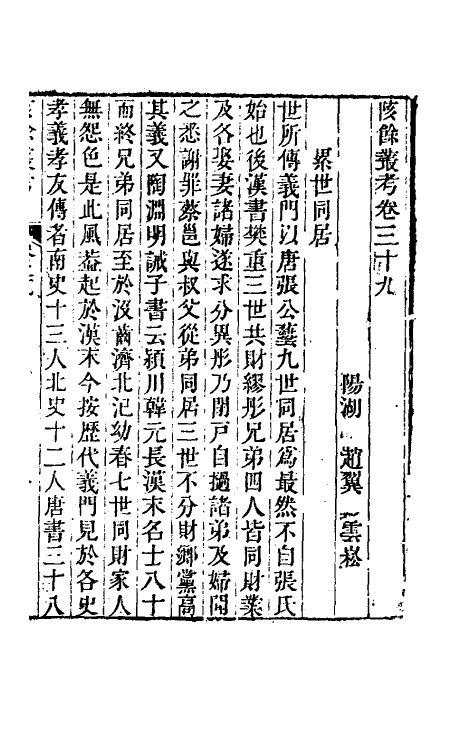 陔餘叢考卷三十九
陽湖 趙翼 雲崧
累世同居
世所傳義門以唐張公藝九世同居爲最然不自張氏
始也後漢書樊重三世共財繆彤兄弟四人皆同財業
及各娶妻諸婦遂求分異彤乃閉戸自撾諸弟及婦聞
之悉謝罪蔡邕與叔父從弟同居三世不分財鄉黨高
其義又陶淵明誡子書云潁川韓元長漢末名士八十
而終兄弟同居至於沒齒濟北汜幼春七世同財家人
無怨色是此風葢起於漢末今按歴代義門見於各史
孝義孝友傳者南史十三人北史十二人唐書三十八